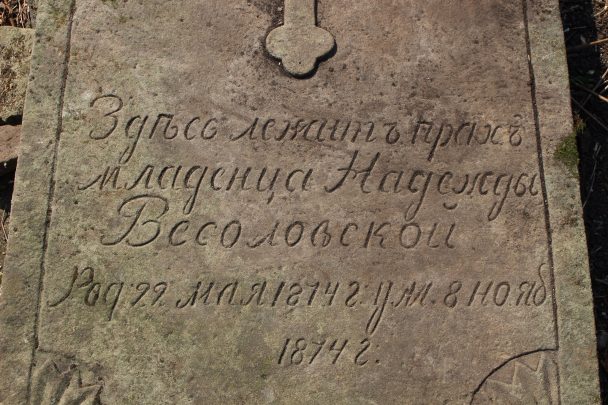 Здѣсь лежитъ прахъ
младенца Надежды
Весоловской
Род: 22 мая 1874 г: ум. 8 нояб
1874 г.